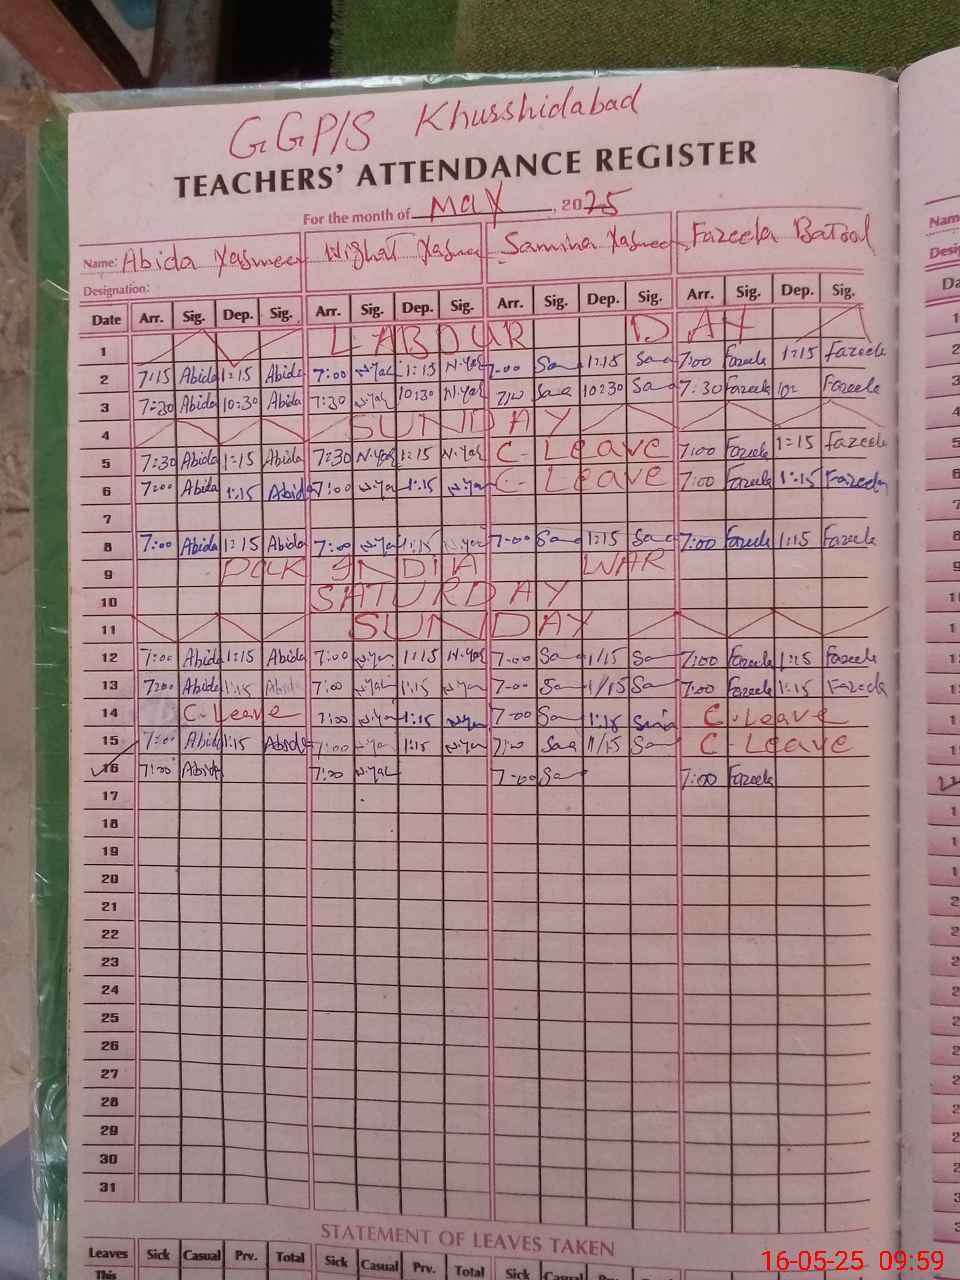 GGP/S Khusshidabad
TEACHERS' ATTENDANCE REGISTER
For the month of May, 2025
Name: Abida Yasmeen Nighat Yasmeen Samina Yasmeen Fazeela Batool
Designation:
Date Arr. Sig. Dep. Sig. Arr. Sig. Dep. Sig. Arr. Sig. Dep. Sig. Arr. Sig. Dep. Sig.
1 LABOUR DAY
2 7:15 Abida 1:15 Abida 7:00 N.Yas 1:15 N.Yas 7-00 Sa 1:15 Saa 7:00 Fazeela 1:15 Fazeela
3 7:30 Abida 10:30 Abida 7:30 N.Yas 10:30 N.Yas Saa 10:30 Sa 7:30 Fazeela 10: Fazeela
4 SUNDAY
5 7:30 Abida 1:15 Abida 7:30 N.Yas 1:15 N.Yas C-Leave 7:00 Fazeela 1:15 Fazeela
6 7:00 Abida 1:15 Abida 7:00 N.Yas 1:15 N.Yas C-Leave 7:00 Fazeela 1:15 Fazeela
7
8 7:00 Abida 1:15 Abida 7:00 N.Yas 1:15 N.Yas 7-00 Sa 1:15 Sa 7:00 Fazeela 1:15 Fazeela
9 PAK INDIA WAR
10 SATURDAY
11 SUNDAY
12 7:00 Abida 1:15 Abida 7:00 N.Yas 1:15 N.Yas 7-00 Sa 1/15 Sa 7:00 Fazeela 1:15 Fazeela
13 7:00 Abida 1:15 Abida 7:00 N.Yas 1:15 N.Yas 7-00 Sa 1/15 Sa 7:00 Fazeela 1:15 Fazeela
14 C-Leave 7:00 N.Yas 1:15 N.Yas 7-00 Sa 1:15 C-Leave
15 7:00 Abida 1:15 Abida 7:00 N.Yas 1:15 N.Yas Saa 1/15 Sa C-Leave
16 7:00 Abida 7:00 N.Yas 7-00 Sa 7:00 Fazeela
17
18
19
20
21
22
23
24
25
26
27
28
29
30
31
STATEMENT OF LEAVES TAKEN
Leaves Sick Casual Prv. Total Sick Casual Prv. Total Sick
This
16-05-25 09:59